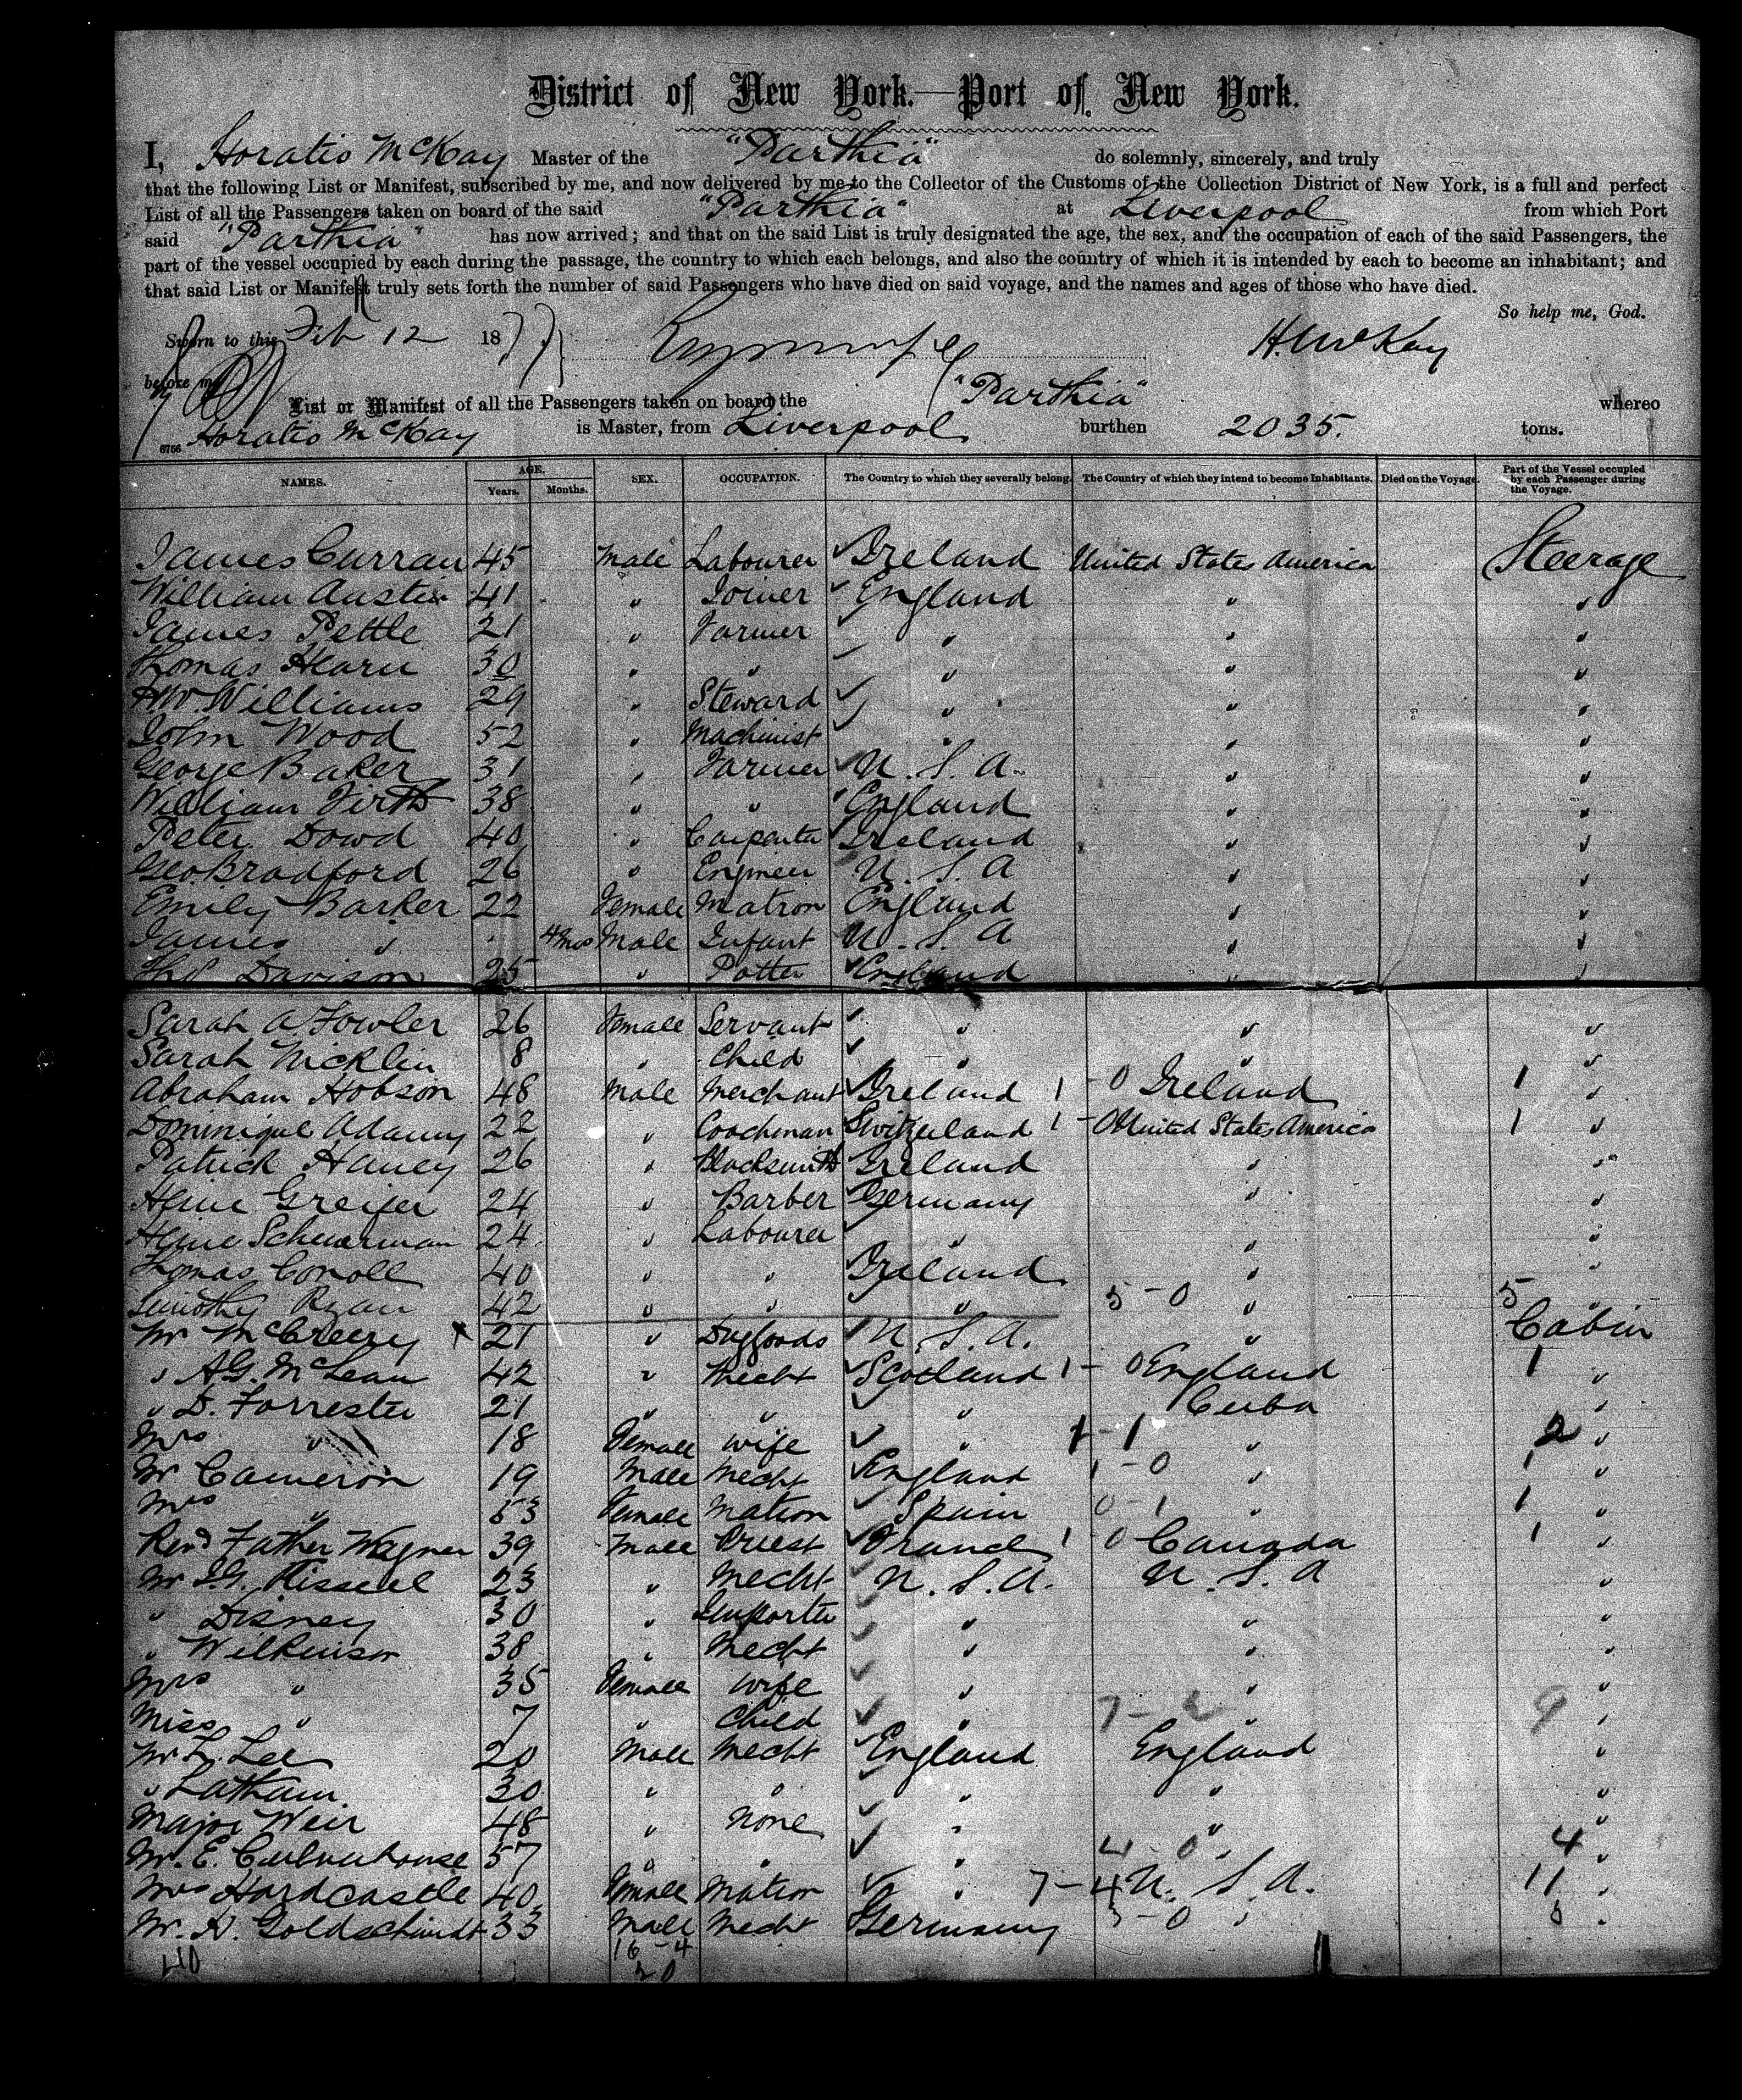 District of New York.—Port of New York.
I, Horatio McKay Master of the "Parthia" do solemnly, sincerely, and truly
that the following List or Manifest, subscribed by me, and now delivered by me to the Collector of the Customs of the Collection District of New York, is a full and perfect
List of all the Passengers taken on board of the said "Parthia" at Liverpool from which Port
said "Parthia" has now arrived; and that on the said List is truly designated the age, the sex, and the occupation of each of the said Passengers, the
part of the vessel occupied by each during the passage, the country to which each belongs, and also the country of which it is intended by each to become an inhabitant; and
that said List or Manifest truly sets forth the number of said Passengers who have died on said voyage, and the names and ages of those who have died.
So help me, God.
Sworn to this Feb 12 187 H. McKay
before me
List or Manifest of all the Passengers taken on board the "Parthia" whereo
6756 Horatio McKay is Master, from Liverpool burthen 2035. tons.
NAMES. AGE. Years. Months. SEX. OCCUPATION. The Country to which they severally belong. The Country of which they intend to become Inhabitants. Died on the Voyage. Part of the Vessel occupied by each Passenger during the Voyage.
James Curran 45 Male Labourer ✓ Ireland United States America Steerage
William Austin 41 " Joiner ✓ England " "
James Pettle 21 " Farmer ✓ " " "
Thomas Hearn 30 " " ✓ " " "
Williams 29 " Steward ✓ " " "
John Wood 52 " Machinist ✓ " " "
George Baker 31 " Farmer ✓ U.S.A. " "
William Firth 38 " " ✓ England " "
Peter Dowd 40 " Carpenter ✓ Ireland " "
Geo. Bradford 26 " Engineer U.S.A " "
Emily Barker 22 Female Matron England " "
James " 4 mos Male Infant U.S.A " "
Thos Davison 25 " Potter ✓ England " "
Sarah A Fowler 26 Female Servant ✓ " " "
Sarah Nicklin 8 " Child ✓ " " "
Abraham Hobson 48 Male Merchant ✓ Ireland 1 - 0 Ireland 1 "
Dominique Adamy 22 " Coachman Switzerland 1 - 0 United States America 1 "
Patrick Haney 26 " Blacksmith ✓ Ireland " "
Greifer 24 " Barber ✓ Germany " "
Scheuerman 24 " Labourer ✓ " " "
Thomas Conoll 40 " " Ireland " "
Timothy Ryan 42 " " ✓ " 5 - 0 " 5 "
Mr McCreery x 21 " Drygoods ✓ U.S.A. " Cabin
" A.G. McLean 42 " Mecht ✓ Scotland 1 - 0 England 1 "
" D. Forrester 21 " " ✓ " Cuba "
Mrs " 18 Female Wife ✓ " 1 - 1 " 2 "
Mr Cameron 19 Male Mecht ✓ England 1 - 0 " 1 "
Mrs " 53 Female Matron ✓ Spain 0 - 1 " 1 "
Revd Father Wagner 39 Male Priest ✓ France 1 - 0 Canada 1 "
Mr Kissell 23 " Mecht ✓ U.S.A. U.S.A "
" Disney 30 " Importer ✓ " " "
" Wilkinson 38 " Mecht ✓ " " "
Mrs " 35 Female Wife ✓ " " "
Miss " 7 " Child ✓ " 7 - 2 " 9 "
Mr Lee 20 Male Mecht ✓ England England "
" Latham 30 " " ✓ " " "
Major Weir 48 " None ✓ " " "
Mr. E. 57 " " ✓ " 4 - 0 " 4 "
Mrs Hardcastle 40 Female Matron ✓ " 7 - 4 U.S.A. 11 "
Mr. H. Goldschmidt 33 Male Mecht Germany 3 - 0 " "
40 16 - 4
20